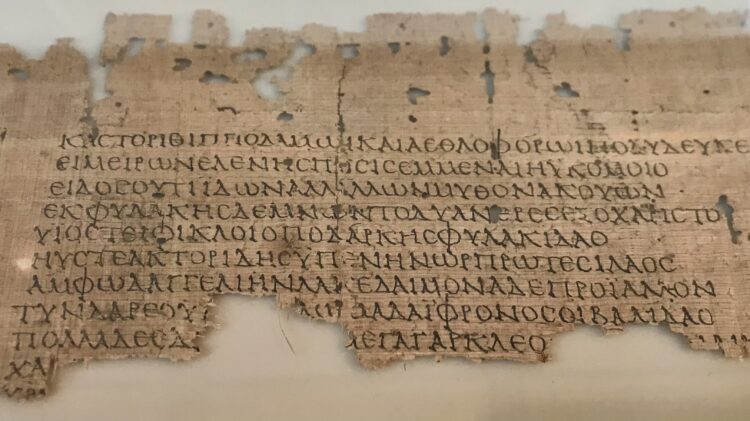 ΚΑΣΤΟΡΙΘΙΠΠΟΔΑΜΩΙΚΑΙΑΕΘΛΟΦΟΡΩΙΠΟΛΥΔΕΥΚΕ
ΕΙΜΕΙΡΩΝΕΛΕΝΗΣΠΟΣΙΣΕΜΜΕΝΑΙΗΥΚΟΜΟΙΟ
ΕΙΔΟΣΟΥΤΙΙΔΩΝΑΛΛΑΛΛΩΝΜΥΘΟΝΑΚΟΥΩΝ
ΕΚΦΥΛΑΚΗΣΔΕΜΝΩΝΤΟΔΥΑΝΕΡΕΣΕΞΟΧΑΡΙΣΤΟΙ
ΥΙΟΣΤΕΙΦΙΚΛΟΙΟΠΟΔΑΡΚΗΣΦΥΛΑΚΙΔΑΟ
ΗΥΣΤΕΑΚΤΟΡΙΔΗΣΥΠΕΡΗΝΩΡΠΡΩΤΕΣΙΛΑΟΣ
ΑΜΦΩΔΑΓΓΕΛΙΗΝΛΑΚΕΔΑΙΜΟΝΑΔΕΠΡΟΪΑΛΛΟΝ
ΤΥΝΔΑΡΕΟΥ ΜΑΔΑΪΦΡΟΝΟΣΟΙΒΑΛΙΔΑΟ
ΠΟΛΛΑΔΕΕΔ ΜΕΓΑΓΑΡΚΛΕΟ
ΧΑ